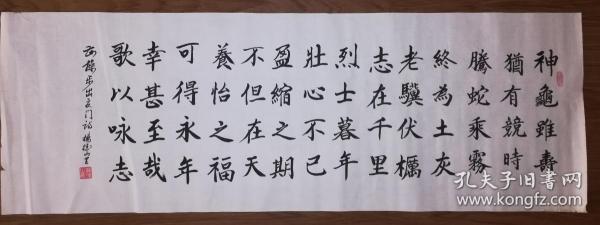 神龜雖壽
猶有競時
騰蛇乘霧
終為土灰
老驥伏櫪
志在千里
烈士暮年
壯心不已
盈縮之期
不但在天
養怡之福
可得永年
幸甚至哉
歌以咏志
步出夏门
孔夫子旧书网
www.kongfz.com